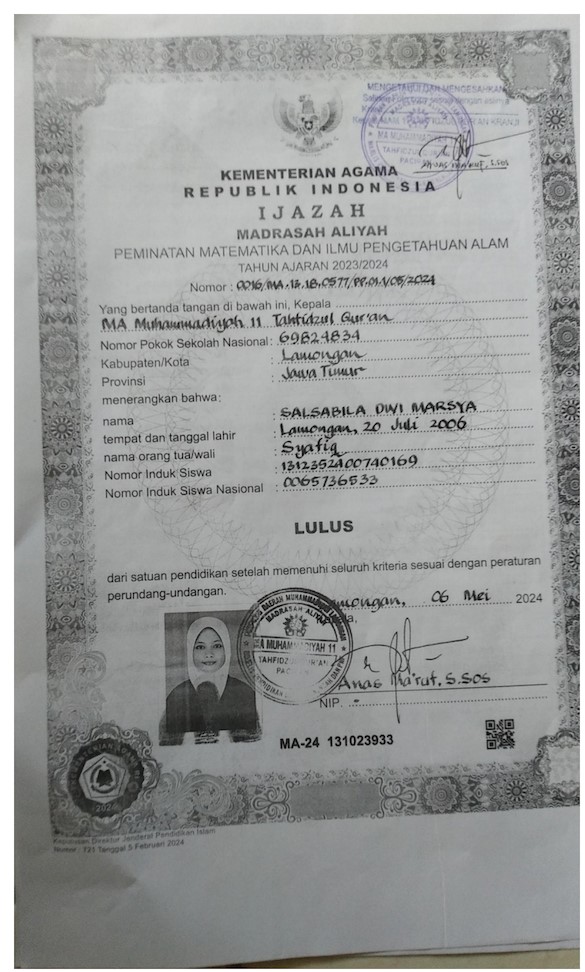 MENGETAHUI DAN MENGESAHKAN
MA MUHAMMADIYAH
TAHFIDZUL QUR'AN
ANAS MA'RUF, S.SOS
KEMENTERIAN AGAMA
REPUBLIK INDONESIA
IJAZAH
MADRASAH ALIYAH
PEMINATAN MATEMATIKA DAN ILMU PENGETAHUAN ALAM
TAHUN AJARAN 2023/2024
Nomor : 0016/MA.13.18.0577/PP.01.1/05/2024
Yang bertanda tangan di bawah ini, Kepala
MA Muhammadiyah 11 Tahfidzul Qur'an
Nomor Pokok Sekolah Nasional : 69824834
Kabupaten/Kota : Lamongan
Provinsi : Jawa Timur
menerangkan bahwa:
nama : SALSABILA DWI MARSYA
tempat dan tanggal lahir : Lamongan, 20 Juli 2006
nama orang tua/wali : Syafiq
Nomor Induk Siswa : 1312352400740169
Nomor Induk Siswa Nasional : 0065736533
LULUS
dari satuan pendidikan setelah memenuhi seluruh kriteria sesuai dengan peraturan
perundang-undangan.
06 Mei 2024
MADRASAH ALIYAH
MA MUHAMMADIYAH 11
TAHFIDZUL QUR'AN
Anas Ma'ruf, S.Sos
NIP. -
MA-24 131023933
Keputusan Direktur Jenderal Pendidikan Islam
Nomor : 721 Tanggal 5 Februari 2024